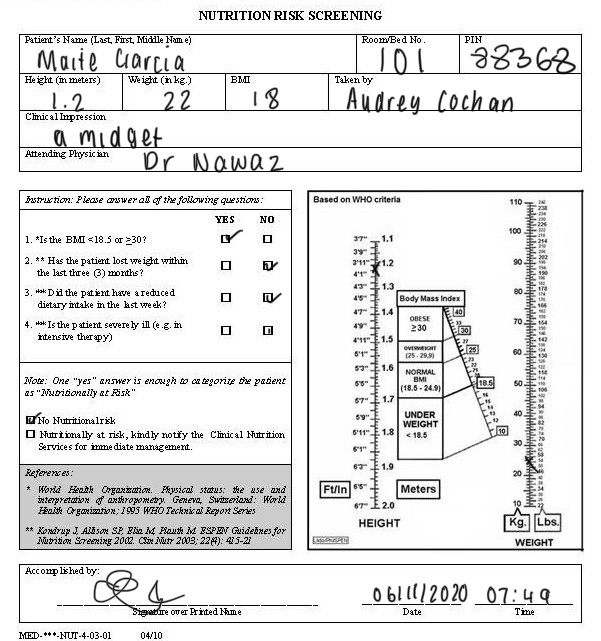 NUTRITION RISK SCREENING
Patient's Name (Last, First, Middle Name) Room/Bed No. PIN
Maite Garcia 101 88368
Height (in meters) Weight (in kg.) BMI Taken by
1.2 22 18 Audrey Cochan
Clinical Impression
a midget
Attending Physician Dr Nawaz
Instruction: Please answer all of the following questions:
YES NO
1. *Is the BMI <18.5 or ≥30?
2. ** Has the patient lost weight within
the last three (3) months?
3. ** Did the patient have a reduced
dietary intake in the last week?
4. ** Is the patient severely ill (e.g. in
intensive therapy)
Note: One "yes" answer is enough to categorize the patient
as "Nutritionally at Risk"
No Nutritional risk
Nutritionally at risk, kindly notify the Clinical Nutrition
Services for immediate management.
References:
* World Health Organization. Physical status: the use and
interpretation of anthropometry. Geneva, Switzerland: World
Health Organization; 1995 WHO Technical Report Series
** Kondrup J, Allison SP, Elia M, Plauth M. ESPEN Guidelines for
Nutrition Screening 2002. Clin Nutr 2003; 22(4): 415-21
Based on WHO criteria
3'7" 1.1
3'9"
3'11" 1.2
4'1"
4'3" 1.3
4'5"
4'7" 1.4
4'9"
4'11" 1.5
5'1"
5'3" 1.6
5'5"
5'7" 1.7
5'9"
5'11" 1.8
6'1"
6'3" 1.9
6'5"
6'7" 2.0
Ft/In Meters
HEIGHT
Body Mass Index
OBESE
≥30
OVERWEIGHT
(25 - 29,9)
NORMAL
BMI
(18.5 - 24.9)
UNDER
WEIGHT
< 18.5
40
30
25
18.5
10
110
100
90
80
70
60
50
40
30
20
10
Kg. Lbs.
WEIGHT
Accomplished by:
06/11/2020 07:49
Signature over Printed Name Date Time
MED-***-NUT-4-03-01 04/10